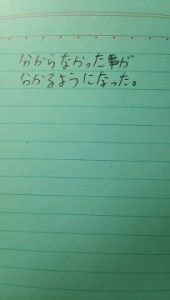 分からなかった事が
分かるようになった。